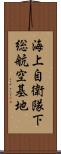 海上自衛隊下
総航空基地